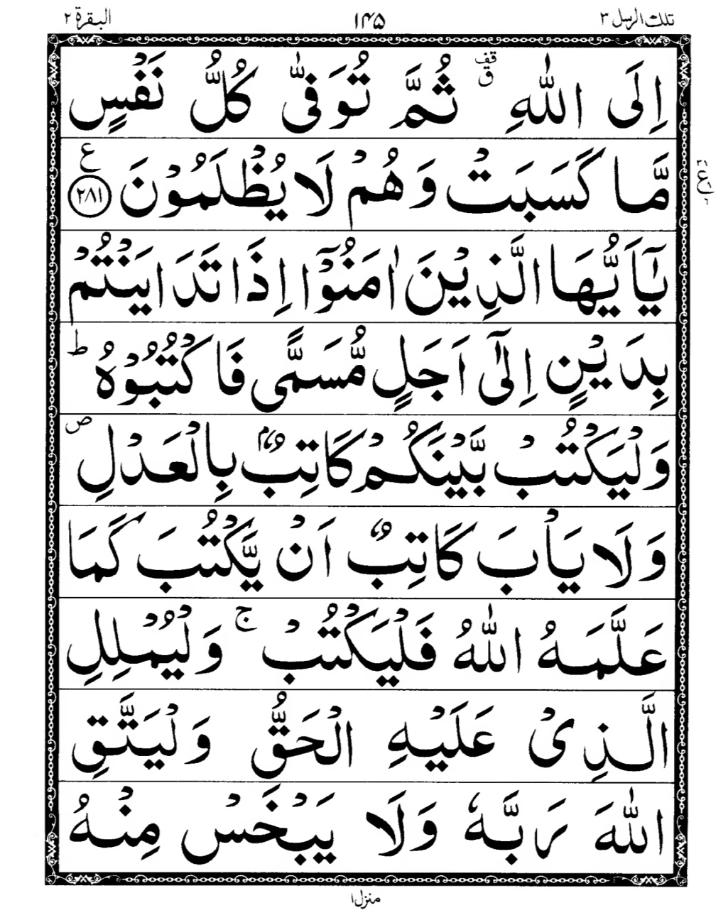 تلك الرسل ٣
١٤٥
البقرة ٢
اِلَى اللّٰهِ ۟ قف ثُمَّ تُوَفّٰى كُلُّ نَفْسٍ
مَّا كَسَبَتْ وَهُمْ لَا يُظْلَمُوْنَ ﴿٢٨١﴾ ع
يٰۤاَيُّهَا الَّذِيْنَ اٰمَنُوْۤا اِذَا تَدَايَنْتُمْ
بِدَيْنٍ اِلٰۤى اَجَلٍ مُّسَمًّى فَاكْتُبُوْهُ ؕ
وَلْيَكْتُبْ بَّيْنَكُمْ كَاتِبٌۢ بِالْعَدْلِ ص
وَلَا يَاْبَ كَاتِبٌ اَنْ يَّكْتُبَ كَمَا
عَلَّمَهُ اللّٰهُ فَلْيَكْتُبْ ۚ وَلْيُمْلِلِ
الَّذِىْ عَلَيْهِ الْحَقُّ وَلْيَتَّقِ
اللّٰهَ رَبَّهٗ وَلَا يَبْخَسْ مِنْهُ
منزل١